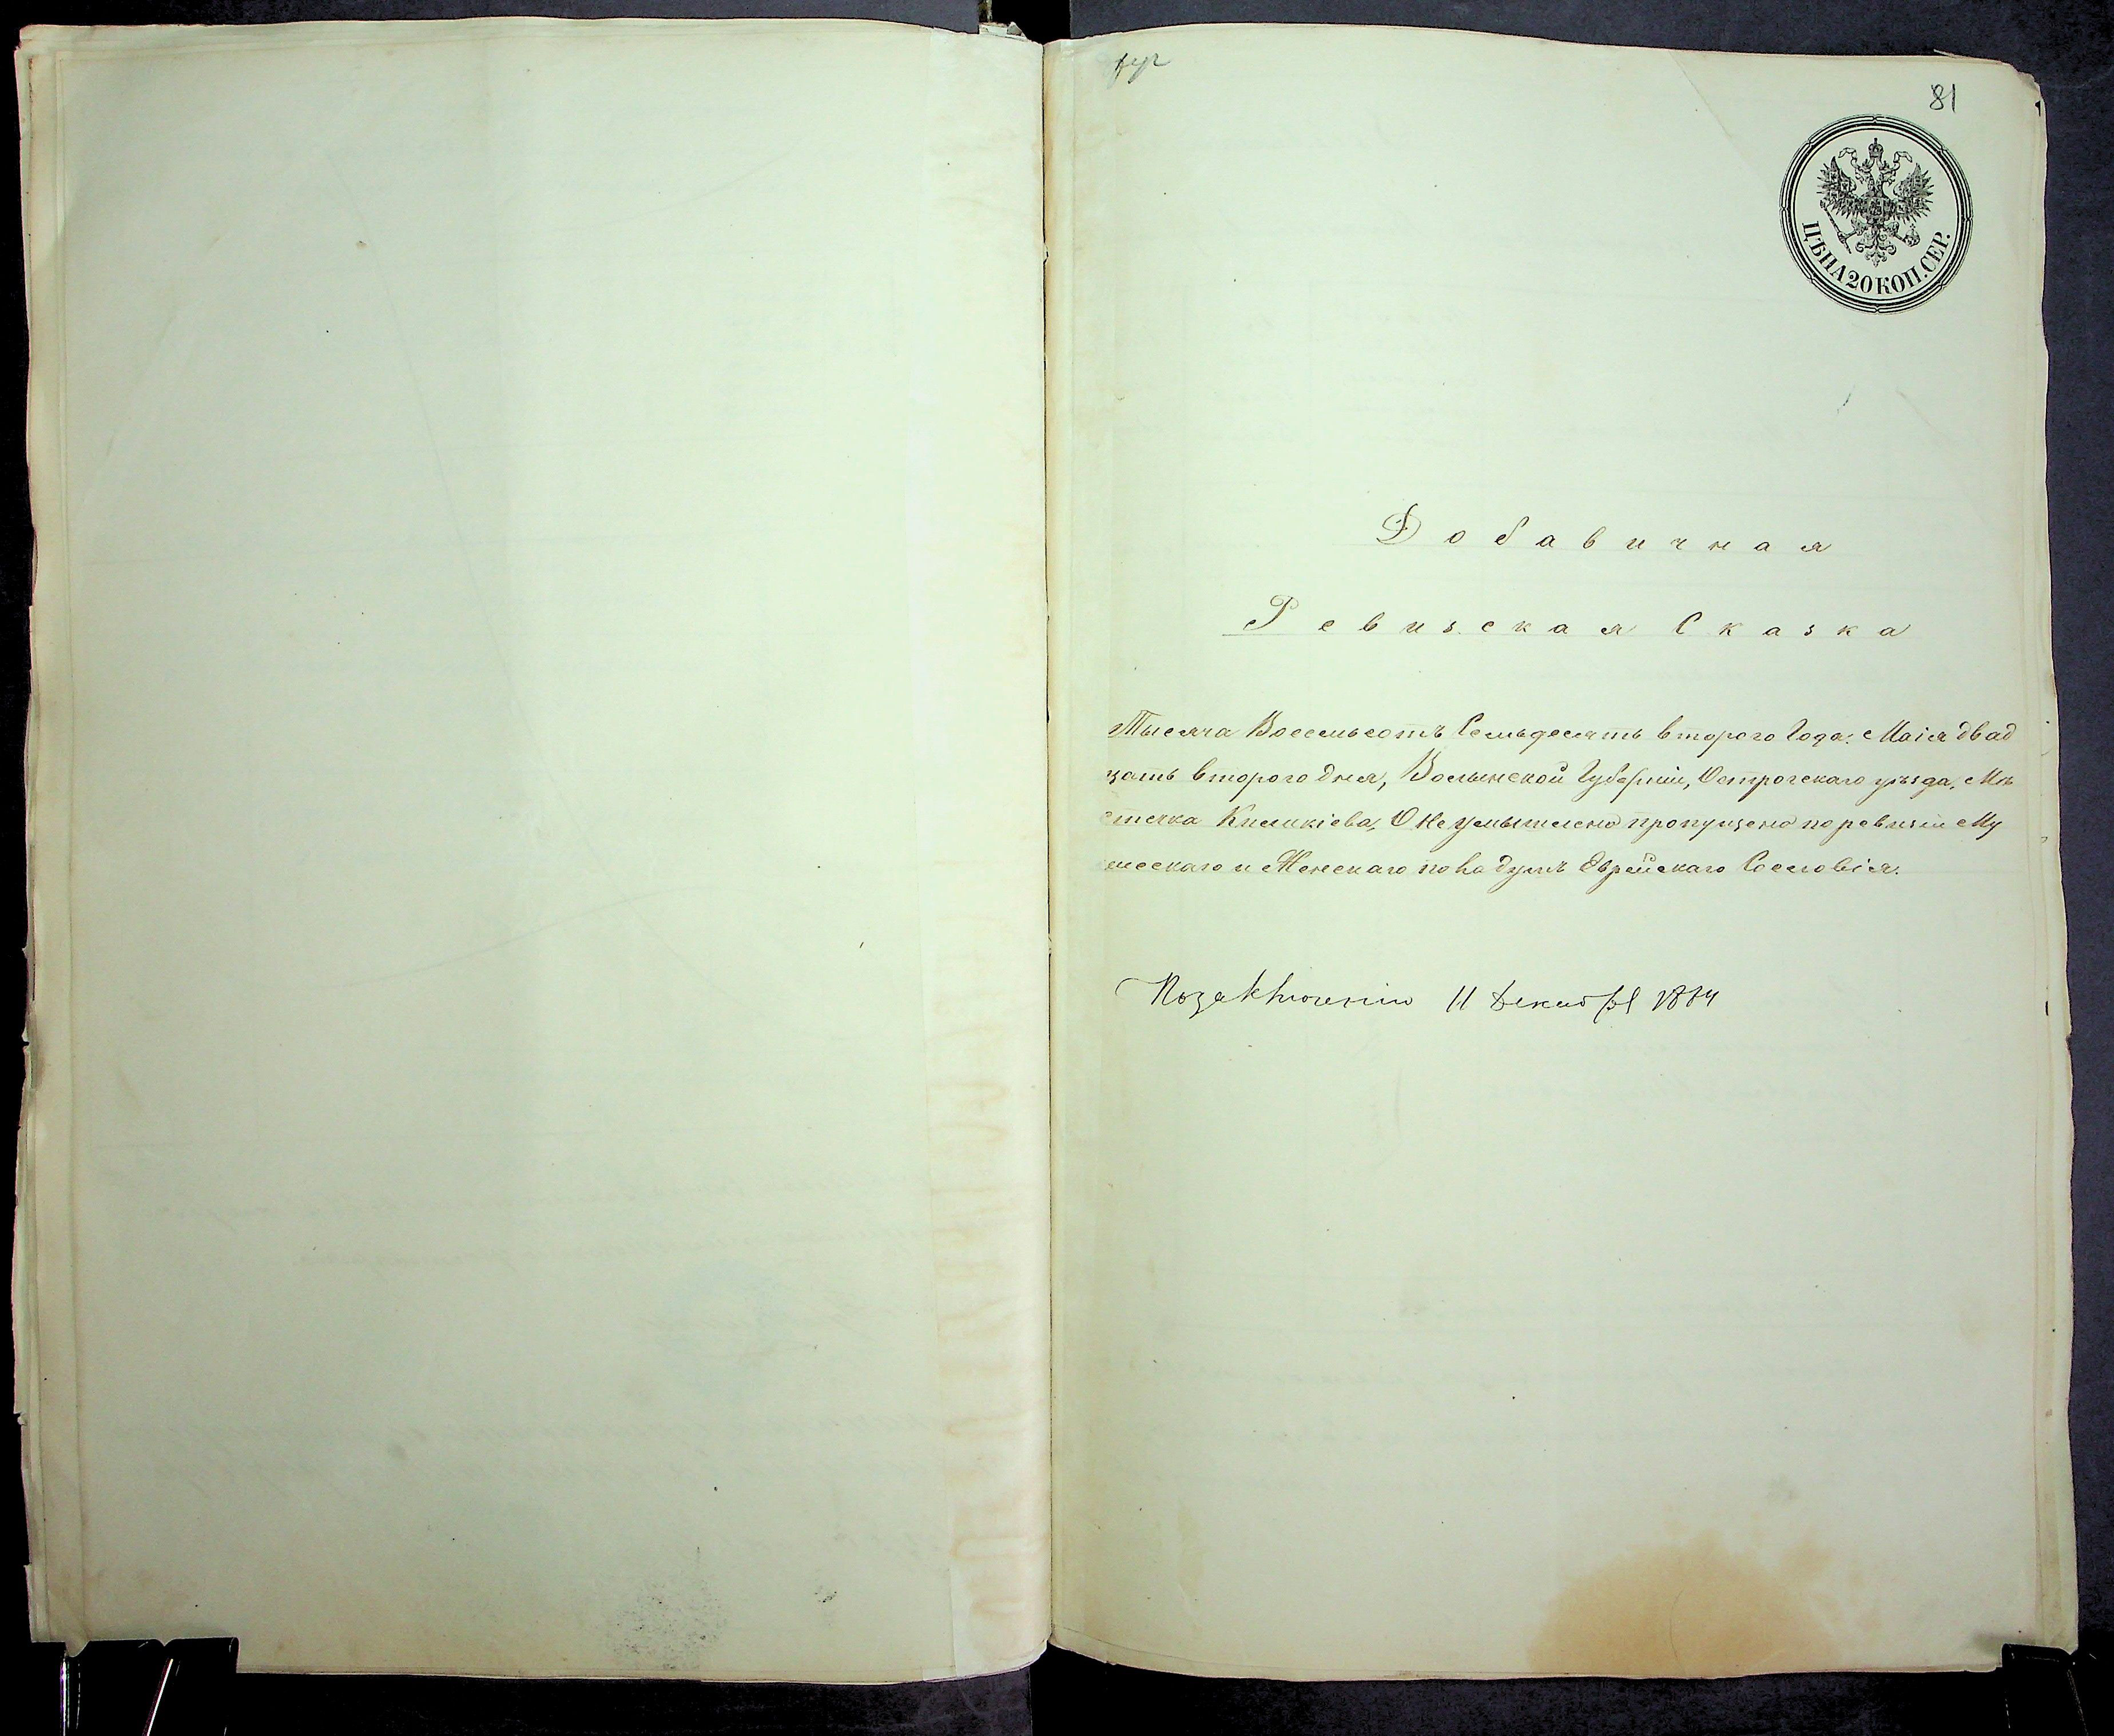 81
ЦѢНА 20 КОП. СЕР.
Добавичная
Ревизская Сказка
Тысяча Восемьсотъ Семьдесять второго Года. Маія двад
цать второго дня, Волынской Губерніи, Острогскаго уѣзда, Мѣ
стечка Киликіева, О не умышлено пропущено по ревизіи Му
жескаго и Женскаго пола душъ Еврейскаго Сословія.
По заключенію 11 Декабря